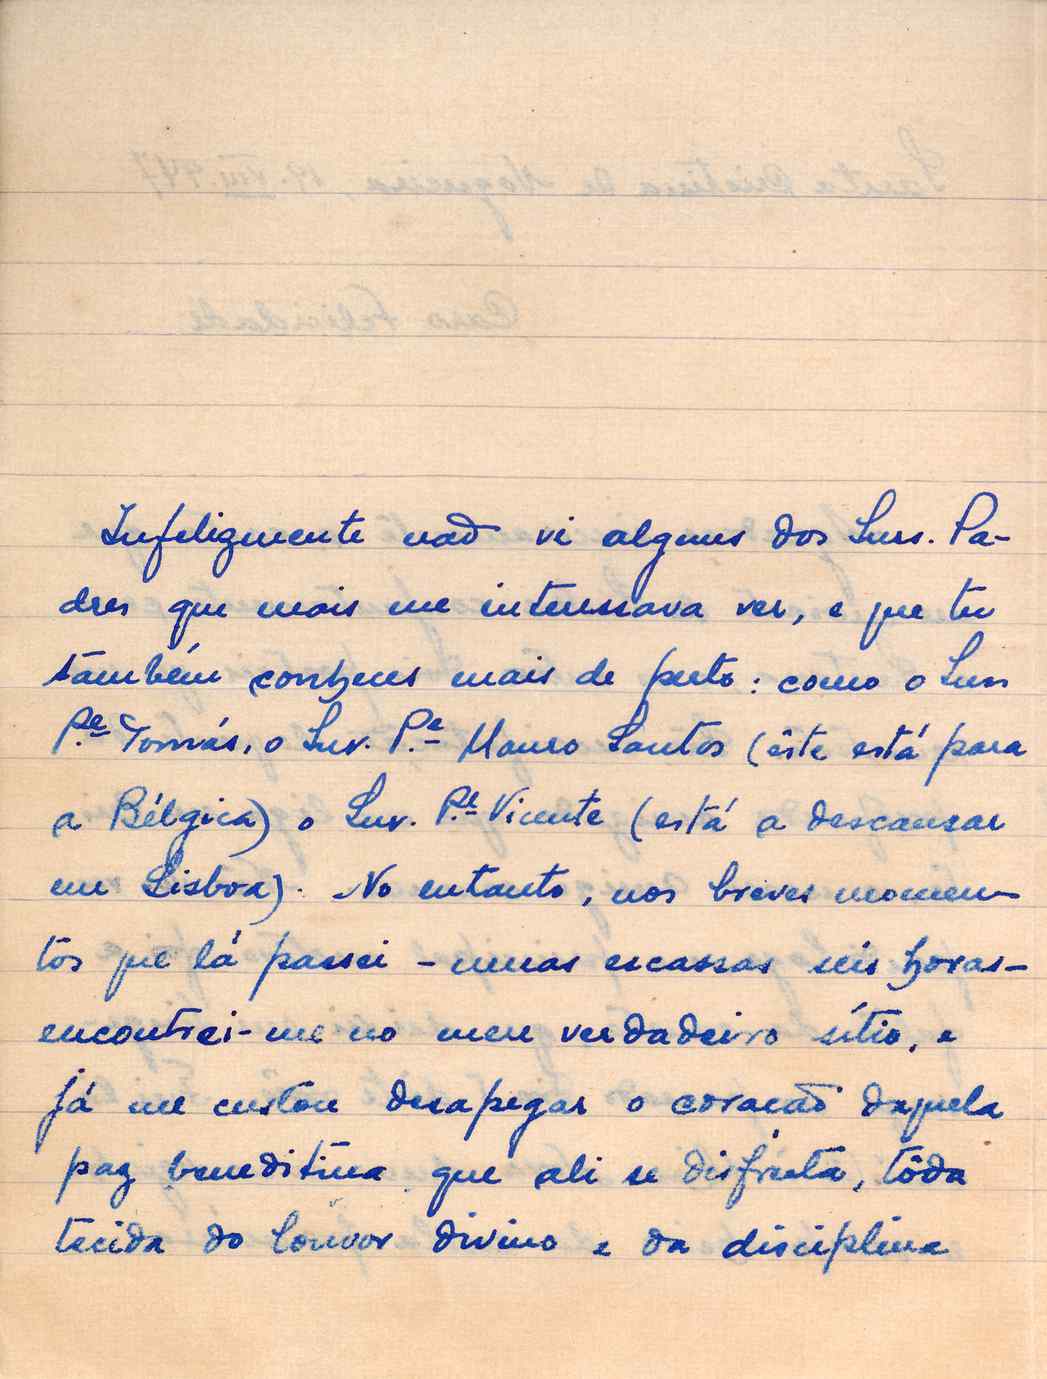 Infelizmente não vi alguns dos Snrs. Pa-
dres que mais me interessava ver, e que tu
também conheces mais de perto: como o Snr
P.e Tomás, o Snr. P.e Mauro Santos (êste está para
a Bélgica) o Snr. P.e Vicente (está a descansar
em Lisboa). No entanto, nos breves momen-
tos que lá passei - umas escassas seis horas-
encontrei-me no meu verdadeiro sítio, e
já me custou desapegar o coração daquela
paz beneditina que ali se disfruta, tôda
tecida do louvor divino e da disciplina